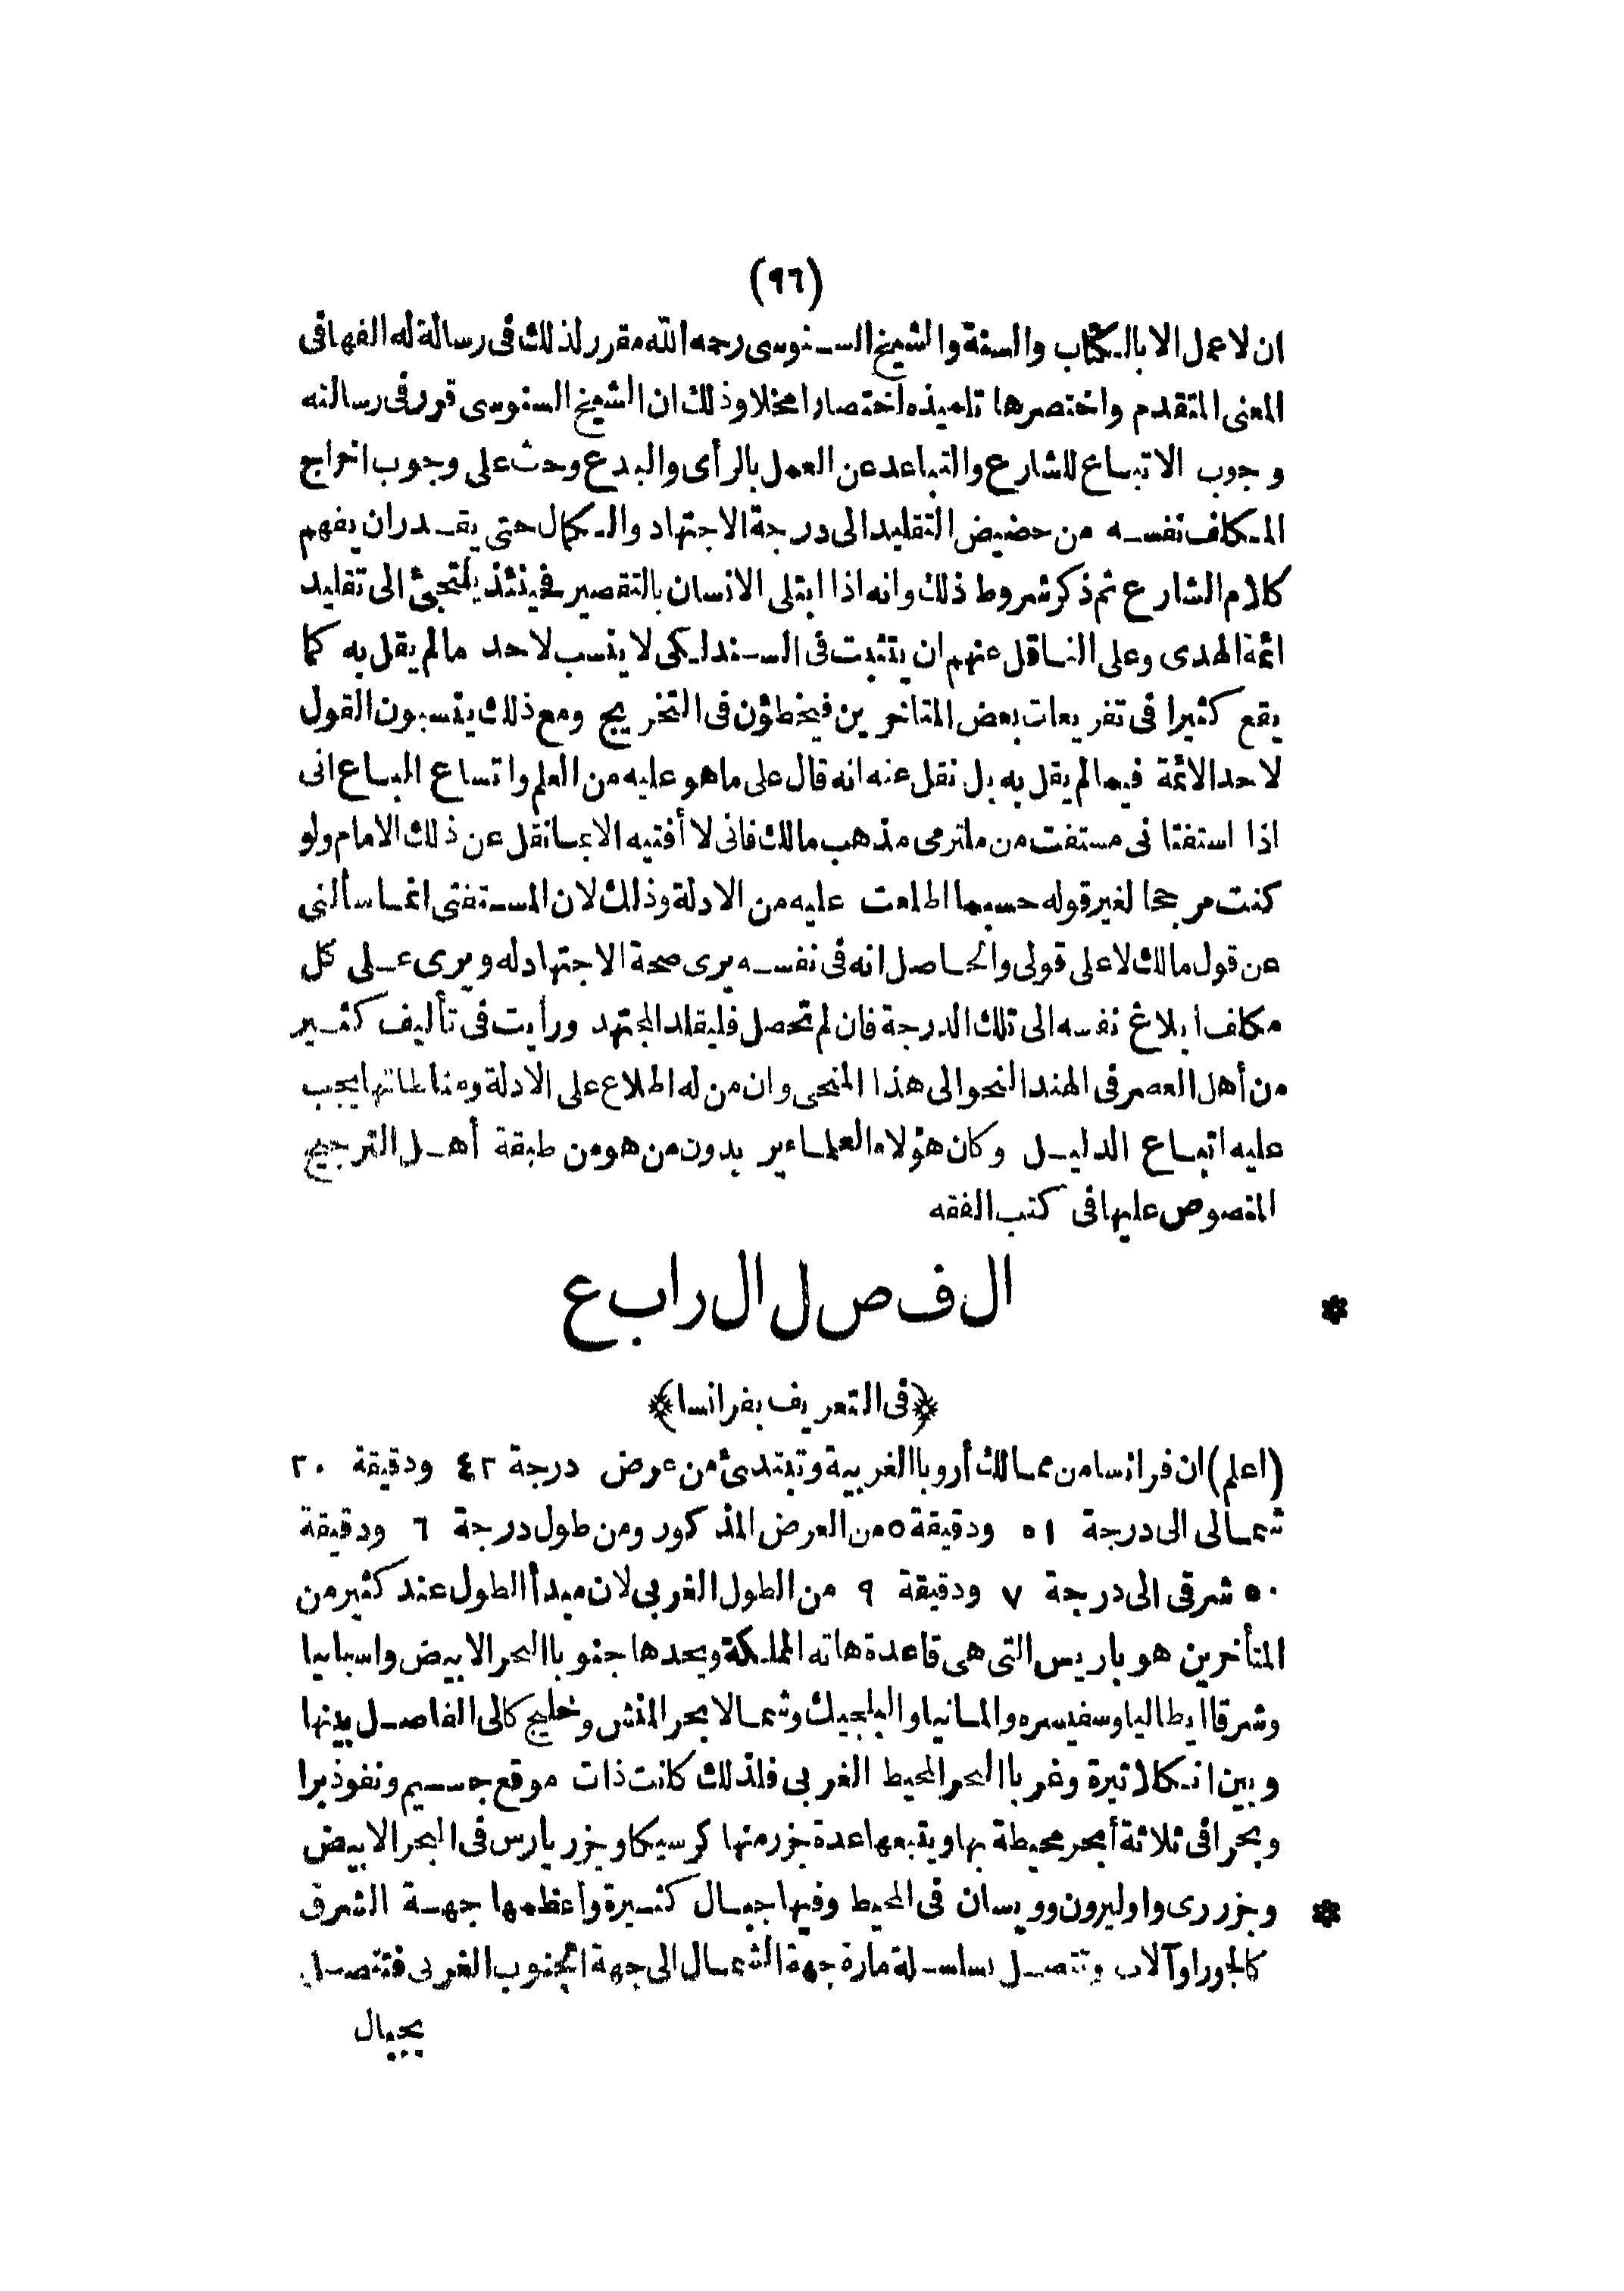 (٩٦)
ان لا عمل الا بالكتاب والسنة والشيخ السنوسى رحمه الله مقرر لذلك فى رسالة له الفها فى
المعنى المتقدم واختصرها تلميذه اختصارا مخلا وذلك ان الشيخ السنوسى قرر فى رسالته
وجوب الاتباع للشارع والتباعد عن العمل بالرأى والبدع وحث على وجوب اخراج
المكلف نفسه من حضيض التقليد الى درجة الاجتهاد والكمال حتى يقدر ان يفهم
كلام الشارع ثم ذكر شروط ذلك وانه اذا ابتلى الانسان بالتقصير فحينئذ يلتجئ الى تقليد
ائمة الهدى وعلى الناقل عنهم ان يتثبت فى السند لكى لا ينسب لاحد مالم يقل به كما
يقع كثيرا فى تفريعات بعض المتاخرين فيخطؤن فى التخريج ومع ذلك ينسبون القول
لاحد الائمة فيما لم يقل به بل نقل عنه انه قال على ما هو عليه من العلم واتساع الباع انى
اذا استفتانى مستفت من ملتزمى مذهب مالك فانى لا أفتيه الا بما نقل عن ذلك الامام ولو
كنت مرجحا لغير قوله حسبما اطلعت عليه من الادلة وذلك لان المستفتى انما سألنى
عن قول مالك لا على قولى والحاصل انه فى نفسه يرى صحة الاجتهاد له ويرى على كل
مكلف ابلاغ نفسه الى تلك الدرجة فان لم تحصل فليقلد المجتهد ورأيت فى تأليف كثير
من أهل العصر فى الهند النحو الى هذا المنحى وان من له اطلاع على الادلة ومناطاتها يجب
عليه اتباع الدليل وكان هؤلاء العلماء يريدون من هو من طبقة أهل الترجيح
المنصوص عليها فى كتب الفقه
* الفصل الرابع
﴿فى التعريف بفرانسا﴾
(اعلم) ان فرانسا من ممالك أروبا الغربية وتبتدئ من عرض درجة ٤٢ ودقيقة ٢٠
شمالى الى درجة ٥١ ودقيقة ٥ من العرض المذكور ومن طول درجة ٦ ودقيقة
٥٠ شرقى الى درجة ٧ ودقيقة ٩ من الطول الغربى لان مبدأ الطول عند كثير من
المتأخرين هو باريس التى هى قاعدة هاته المملكة ويحدها جنوبا البحر الابيض واسبانيا
وشرقا ايطاليا وسفيسره والمانيا والبلجيك وشمالا بحر المنش وخليج كالى الفاصل بينها
وبين انكلاتيرة وغربا البحر المحيط الغربى فلذلك كانت ذات موقع جسيم ونفوذ برا
وبحرا فى ثلاثة أبحر محيطة بها ويتبعها عدة جزر منها كرسيكا وجزر يارس فى البحر الابيض
* وجزر رى واوليرون وويسان فى المحيط وفيها جبال كثيرة وأعظمها جهة الشرق
كالجورا وآلاب وتتصل بسلسلة مارة جهة الشمال الى جهة الجنوب الغربى فتتصل
بجبال